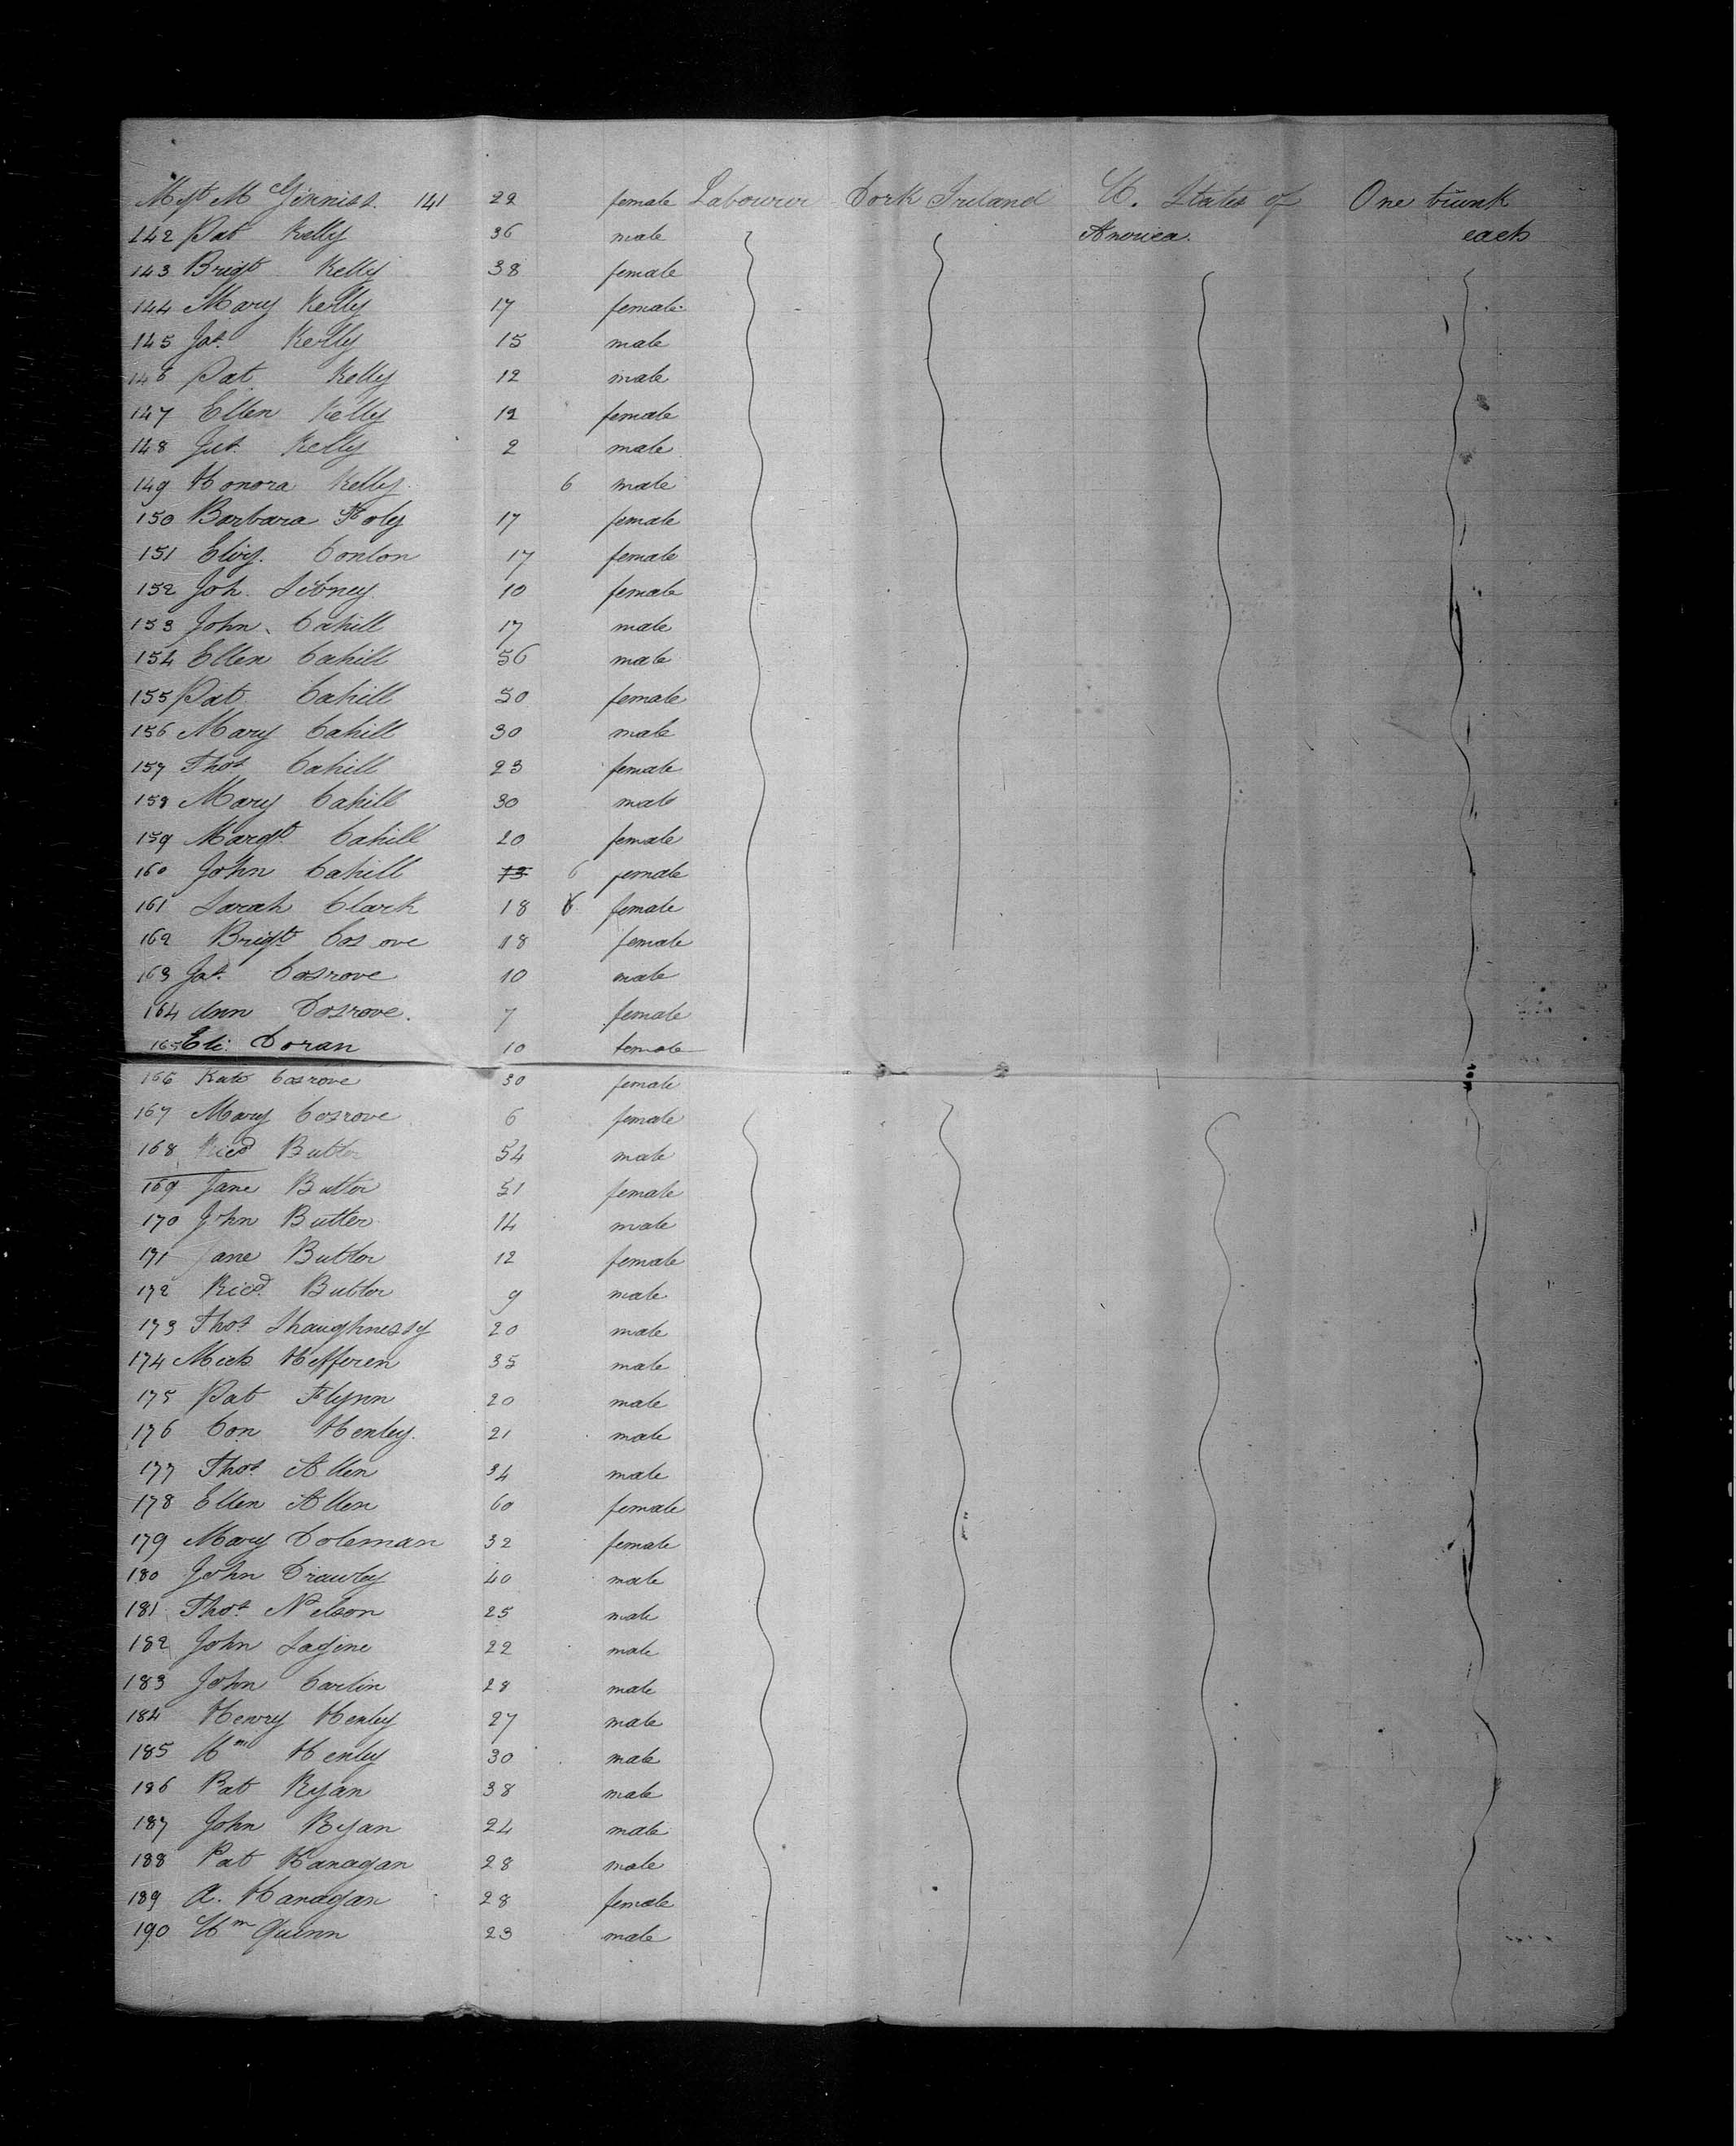 Mgt McGinniss. 141 22 female Labourer Cork Ireland U. States of One trunk
142 Pat Kelly 36 male America. each
143 Brigt Kelly 38 female
144 Mary Kelly 17 female
145 Jas. Kelly 15 male
146 Pat. Kelly 12 male
147 Ellen Kelly 12 female
148 Kelly 2 male
149 Honora Kelly 6 male
150 Barbara Foly 17 female
151 Eliz. Conlon 17 female
152 Joh. Sibney 10 female
153 John Cahill 17 male
154 Ellen Cahill 56 male
155 Pat. Cahill 50 female
156 Mary Cahill 30 male
157 Thos Cahill 23 female
158 Mary Cahill 30 male
159 Margt. Cahill 20 female
160 John Cahill 13 6 female
161 Sarah Clark 18 6 female
162 Brigt. Cos ove 18 female
163 Jas. Cosrove 10 male
164 Ann Cosrove. 7 female
165 Eli. Doran 10 female
166 Kate Cosrove 30 female
167 Mary Cosrove 6 female
168 Ricd Butler 54 male
169 Jane Butler 51 female
170 John Butler 14 male
171 Jane Butler 12 female
172 Ricd. Butler 9 male
173 Thos. Shaughnessy 20 male
174 Mich Hefferen 35 male
175 Pat Flynn 20 male
176 Con Henley. 21 male
177 Thos. Allen 34 male
178 Ellen Allen 60 female
179 Mary Coleman 32 female
180 John Crawley 40 male
181 Thos. Nelson 25 male
182 John 22 male
183 John Carlin 28 male
184 Henry Henley 27 male
185 Wm Henley 30 male
186 Pat Ryan 38 male
187 John Ryan 24 male
188 Pat Hanagan 28 male
189 A. Hanagan 28 female
190 Wm Quinn 23 male